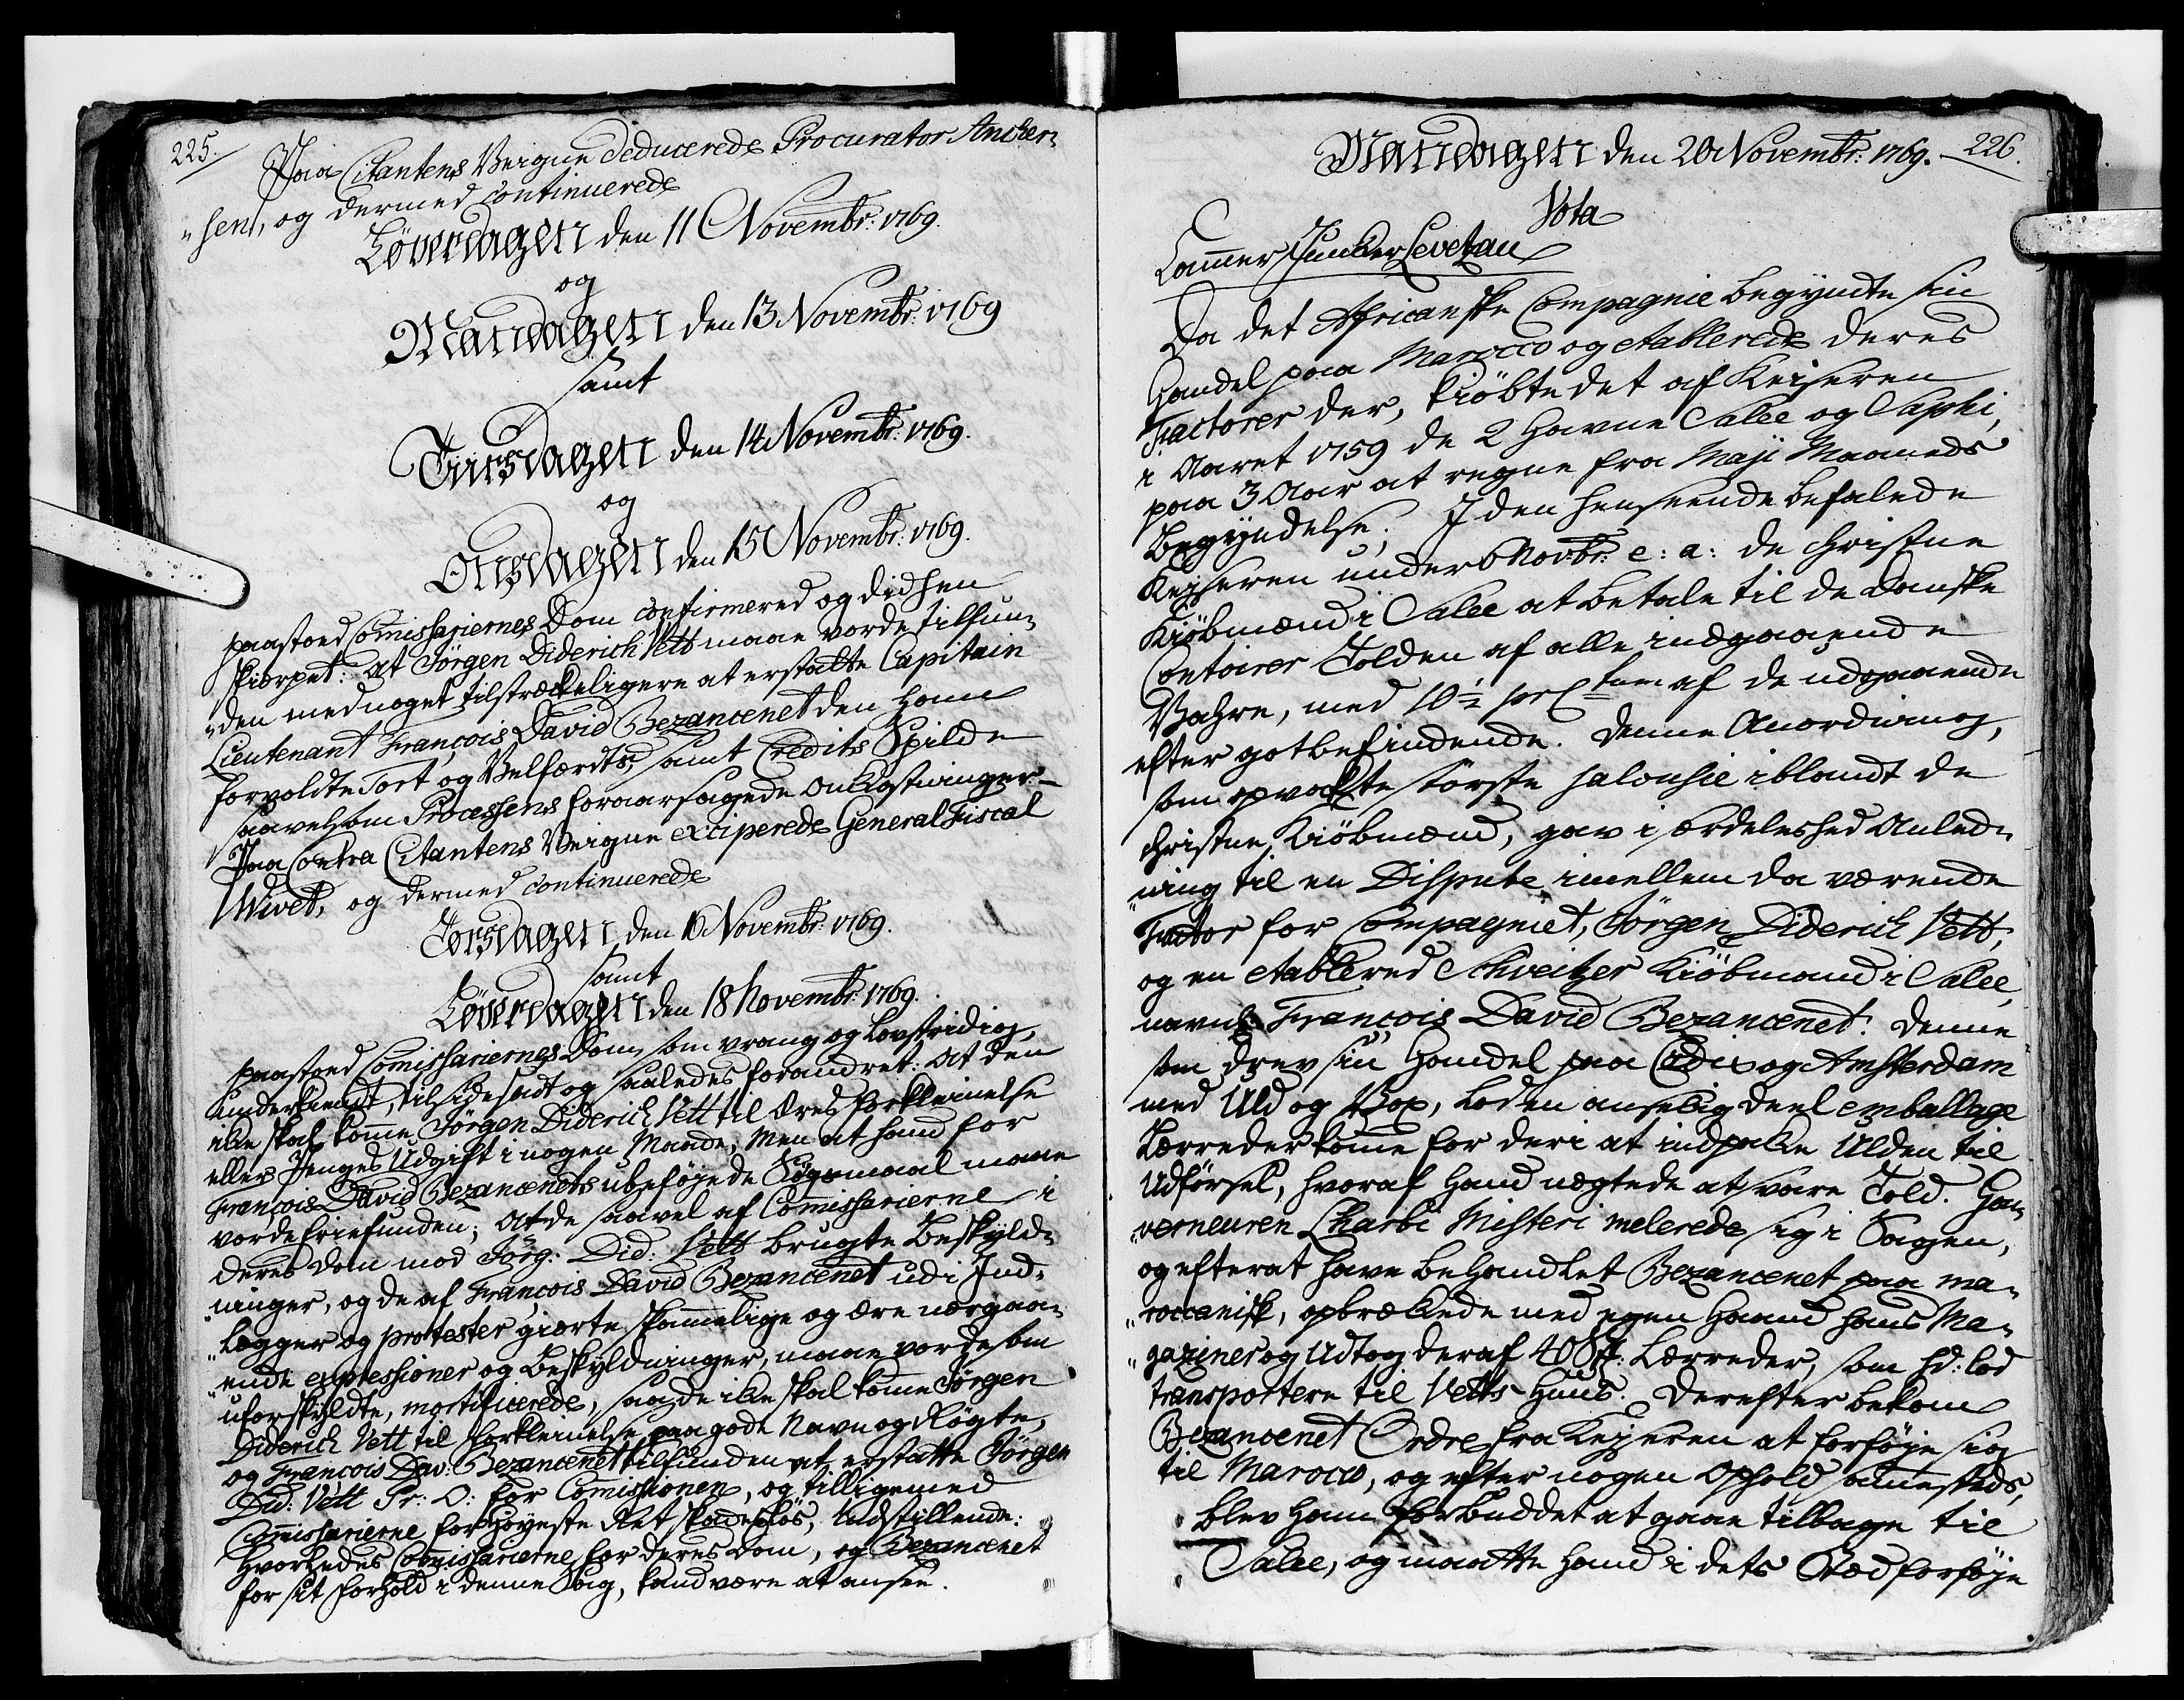 225.
Paa Citantens Veigne deducerede Procurator Ancker-
"sen, og dermed continuerede
Løverdagen den 11 Novembr: 1769.
og
Mandagen den 13 Novembr: 1769
samt
Tiirsdagen den 14 Novembr: 1769.
og
Onsdagen den 15 Novembr: 1769.
paastoed Commissariernes Dom confirmered og didhen
skierpet: at Jörgen Diderich Vett maae vorde tilfun-
"den med noget tilstrækkeligere at erstatte Capitain
Lieutenant François David Bezancenet den ham
forvoldte Tort og Velfærdts, samt Credits Spilde
saavelsom Processens foraarsagede Omkostninger.
Paa Contra Citantens Veigne exciperede General Fiscal
Wivet, og dermed continuerede
Torsdagen den 16 Novembr: 1769.
samt
Løverdagen den 18 Novembr: 1769.
paastoed Commissariernes Dom, som vrang og lovstridig,
underkiendt, tilsidesadt og saaledes forandret: At den
ikke skal komme Jörgen Diderich Vett til Æres Forkleinelse
eller Penges Udgift i nogen Maade; Men at hand for
François David Bezancenets ubeföjede Sögsmaal maae
vorde friefunden; At de saavel af Commissarierne i
deres Dom mod Jörg: Did: Vett brugte Beskyld-
"ninger, og de af Francois David Bezancenet udi Ind-
"lægger og protester giorte skammelige og ære nærgaa-
"ende expressioner og Beskyldninger, maae vorde som
uforskyldte, mortificerede, saa de ikke skal komme Jörgen
Diderich Vett til Forkleinelse paa gode Navn og Rögte,
og Francois Dav: Bezancenet tilfunden at erstatte Jörgen
Did: Vett Pr: O: for Commissionen, og tilligemed
Commissarierne for Höyeste Ret skadeslös, Indstillende:
Hvorledes Commissarierne for deres Dom, og Bezancenet
for sit Forhold i denne Sag, kand være at ansee.
Mandagen den 20 Novembr: 1769. 226.
Vota
Cammer Juncker Levetzau
Da det Africanske Compagnie begyndte sin
Handel paa Marocco og etablerede deres
Factorer der, kiöbte det af Keiseren
i Aaret 1759 de 2 Havne Salee og Saphi,
paa 3 Aar at regne fra Maji Maaneds
Begyndelse; I den Henseende befalede
Keyseren under 6 Novbr: e: a: de christne
Kiöbmænd i Salee at betale til de Danske
Contoirer Tolden af alle indgaaende
Vahre, med 10½ pr Ctum af de udgaaende
efter gotbefindende. Denne Anordning,
som opvakte störste jalousie iblandt de
christne Kiöbmænd, gav i særdeleshed Anled-
"ning til en Dispute imellem da værende
Factor for Compagniet, Jörgen Diderich Vett,
og en etablered Schweitzer Kiöbmand i Salee,
navnl: François David Bezancenet. Denne
som drev sin Handel paa Cadix og Amsterdam
med Uld og Vox, lod en anselig deel emballage
Lærreder komme for deri at indpakke Ulden til
Udförsel, hvoraf Hand nægtede at svare Told. Gou-
"verneuren Lharbi Misteri melerede sig i Sagen,
og efterat have behandlet Bezancenet paa ma-
"roccanisk, opbrækkede med egen Haand hans Ma-
"gaziner og Udtog deraf 40 St: Lærreder, som hd: lod
transportere til Vetts Huus. Derefter bekom
Bezancenet Ordre fra Keyseren at forföje sig
til Marocco, og efter nogen Ophold sammesteds,
blev Ham forbuddet at gaae tilbage til
Salee, og maatte Hand i dets Stæd forföje